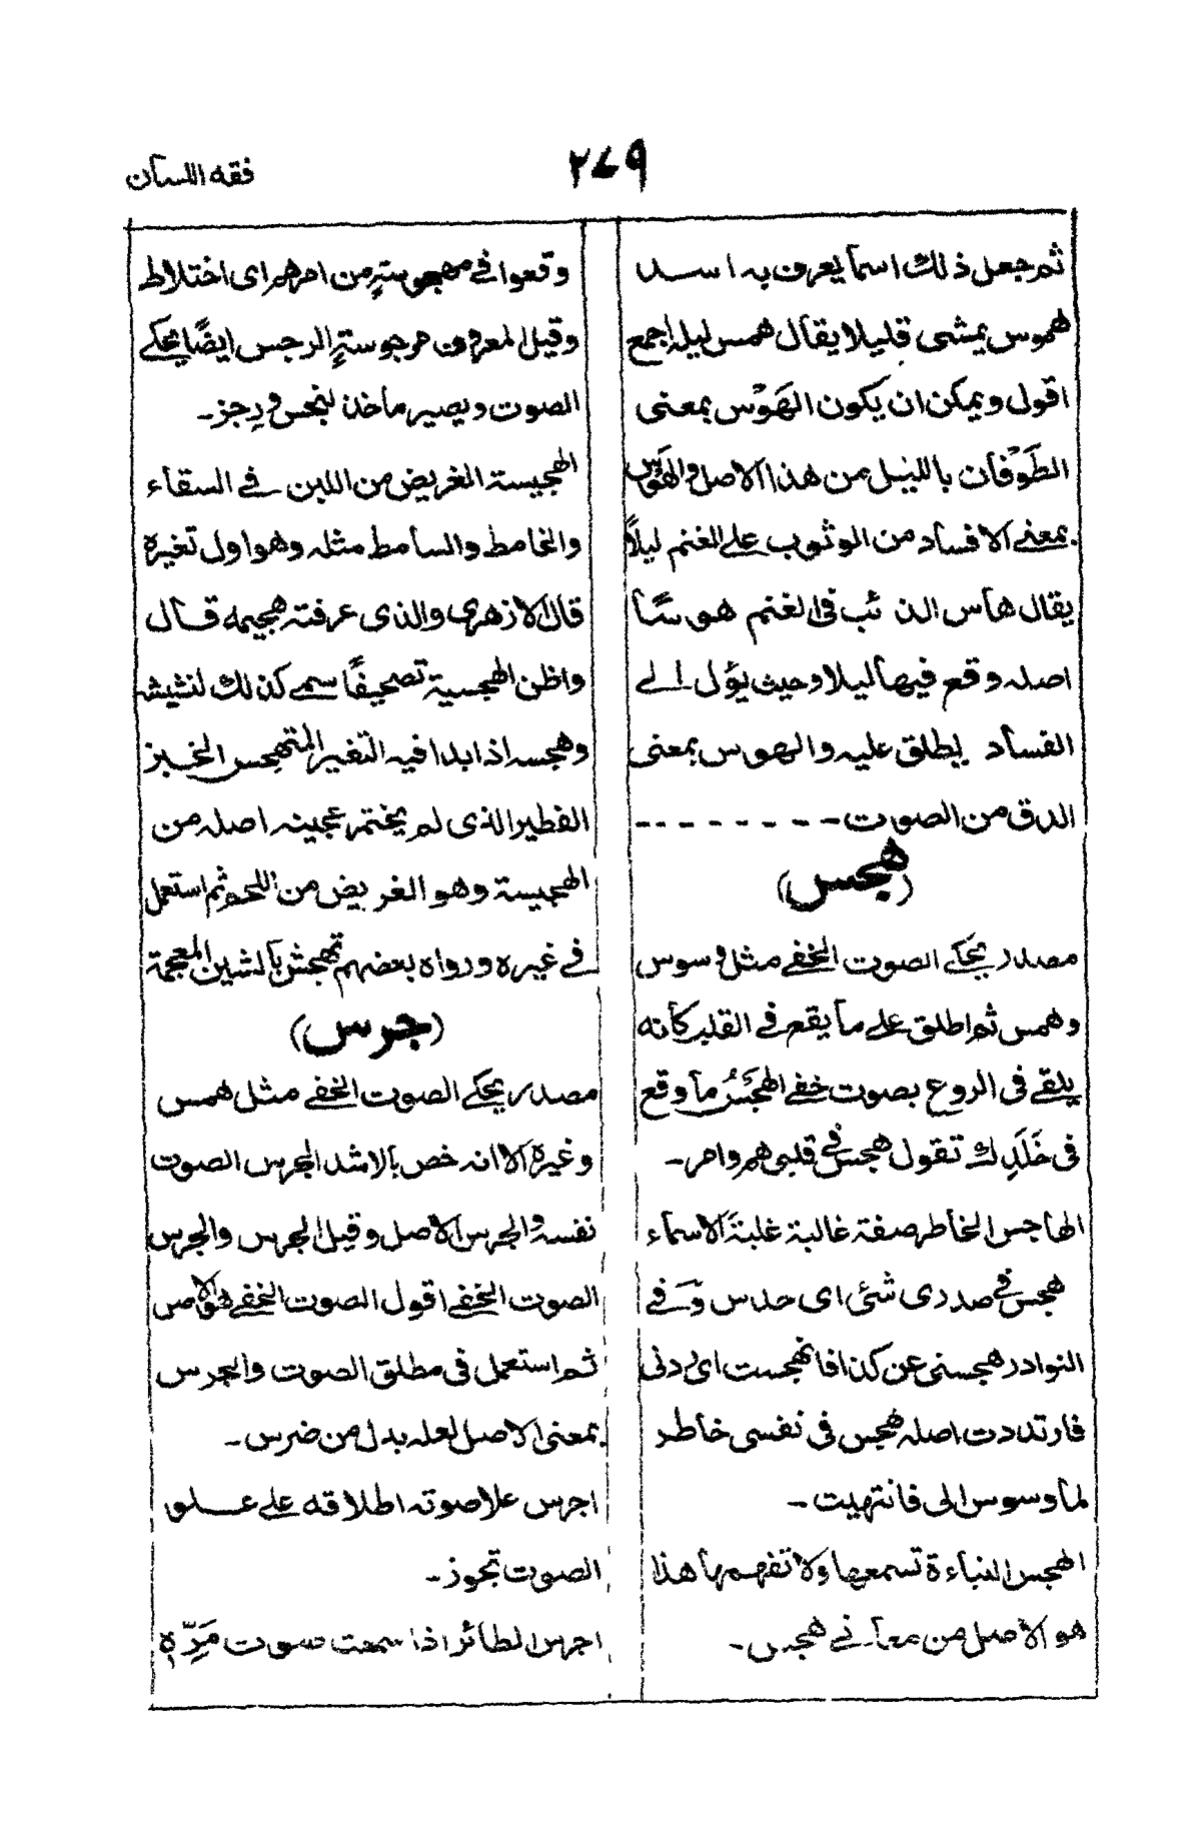 فقه اللسان
٢٧٩
ثم جعل ذلك اسما يعرف به اسد
هموس يمشى قليلا يقال همس ليله اجمع
اقول ويمكن ان يكون الهَوْس بمعنى
الطَوْفان بالليل من هذا الاصل والهَوْس
بمعنے الافساد من الوثوب علے الغنم ليلًا
يقال هاس الذئب فى الغنم هوسًا
اصله وقع فيها ليلا وحيث يؤل الے
الفساد يطلق عليه والهوس بمعنى
الدق من الصوت - - - - - - - -
(هجس)
مصدر يحكے الصوت الخفے مثل وسوس
وهمس ثم اطلق علے ما يقع فے القلب كانه
يلقے فى الروع بصوت خفے الهَجَسُ ما وقع
فى خَلَدِك تقول هجس فے قلبى هم وامر۔
الهاجس الخاطر صفة غالبة غلبة الاسماء
هجس فے صدرى شئ اى حدس وَفے
النوادر هجسنى عن كذا فانهجست اى ردنى
فارتددت اصله هجس فى نفسى خاطر
لما وسوس الى فانتهيت۔
الهجس النباءة تسمعها ولا تفهمها هذا
هو الاصل من معانے هجس۔
وقعوا فے مهجوسة من امرهم اى اختلاط
وقيل المعروف مرجوسة الرجس ايضًا يحكے
الصوت ويصير ماخذ لنجس ورجز۔
الهجيسة الغريض من اللبن فے السقاء
والخامط والسامط مثله وهو اول تغيره
قال الازهرى والذى عرفته هجيمه قال
واظن الهجسية تصحيفًا سمے كذلك لنشيشه
وهجسه اذ ابدا فيه التغير المتهجس الخبز
الفطير الذى لم يختمر عجينه اصله من
الهجيسة وهو الغريض من اللحم ثم استعمل
فے غيره ورواه بعضهم تهجش بالشين المعجمة
(جرس)
مصدر يحكے الصوت الخفے مثل همس
وغيره الا انه خص بالاشد الجرس الصوت
نفسه والجرس الاصل وقيل الجرس والجرس
الصوت الخفے اقول الصوت الخفے هو الاصل
ثم استعمل فى مطلق الصوت والجرس
بمعنى الاصل لعله بدل من ضرس۔
اجرس علا صوته اطلاقه علے علو
الصوت تجوز۔
اجرس الطائر اذا سمعت صوت مَرِّهٖ